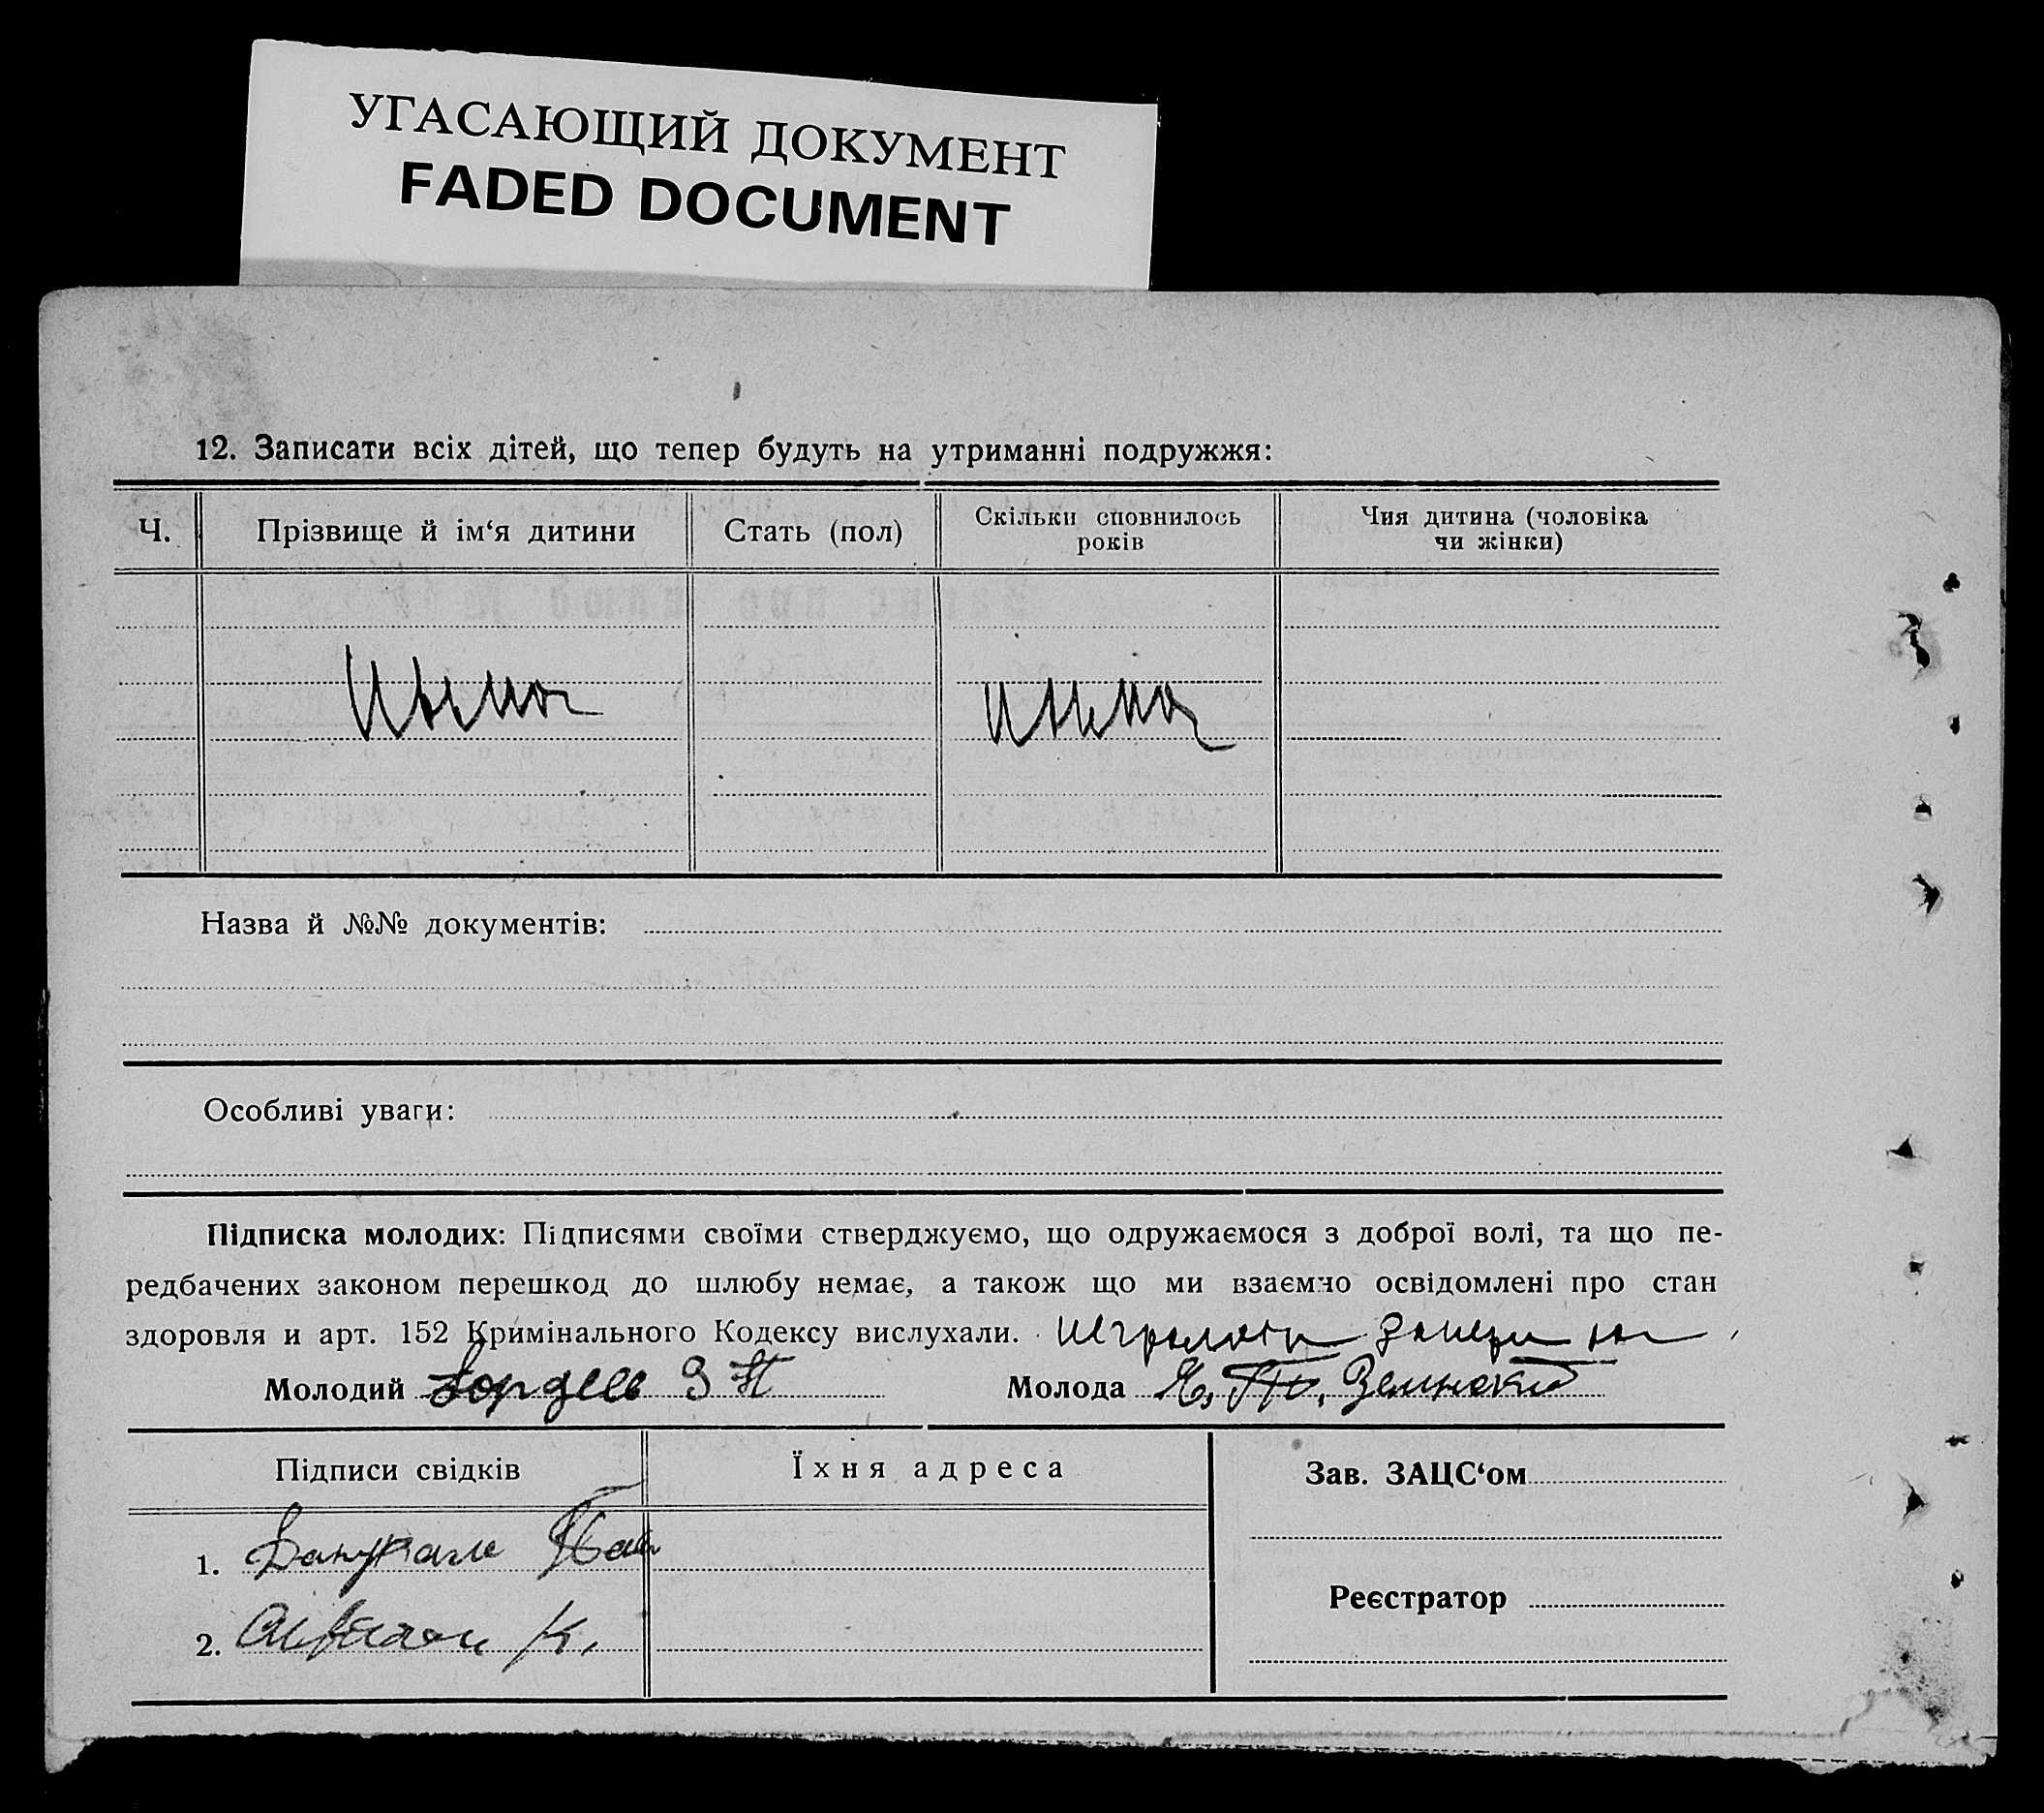 УГАСАЮЩИЙ ДОКУМЕНТ
FADED DOCUMENT
12. Записати всіх дітей, що тепер будуть на утриманні подружжя:
Ч. Прізвище й ім‘я дитини Стать (пол) Скільки сповнилось років Чия дитина (чоловіка чи жінки)
Назва й №№ документів:
Особливі уваги:
Підписка молодих: Підписями своїми стверджуємо, що одружаємося з доброї волі, та що пе-
редбачених законом перешкод до шлюбу немає, а також що ми взаємно освідомлені про стан
здоровля и арт. 152 Кримінального Кодексу вислухали.
Молодий Молода
Підписи свідків Їхня адреса Зав. ЗАЦС‘ом
1.
Реєстратор
2. К.